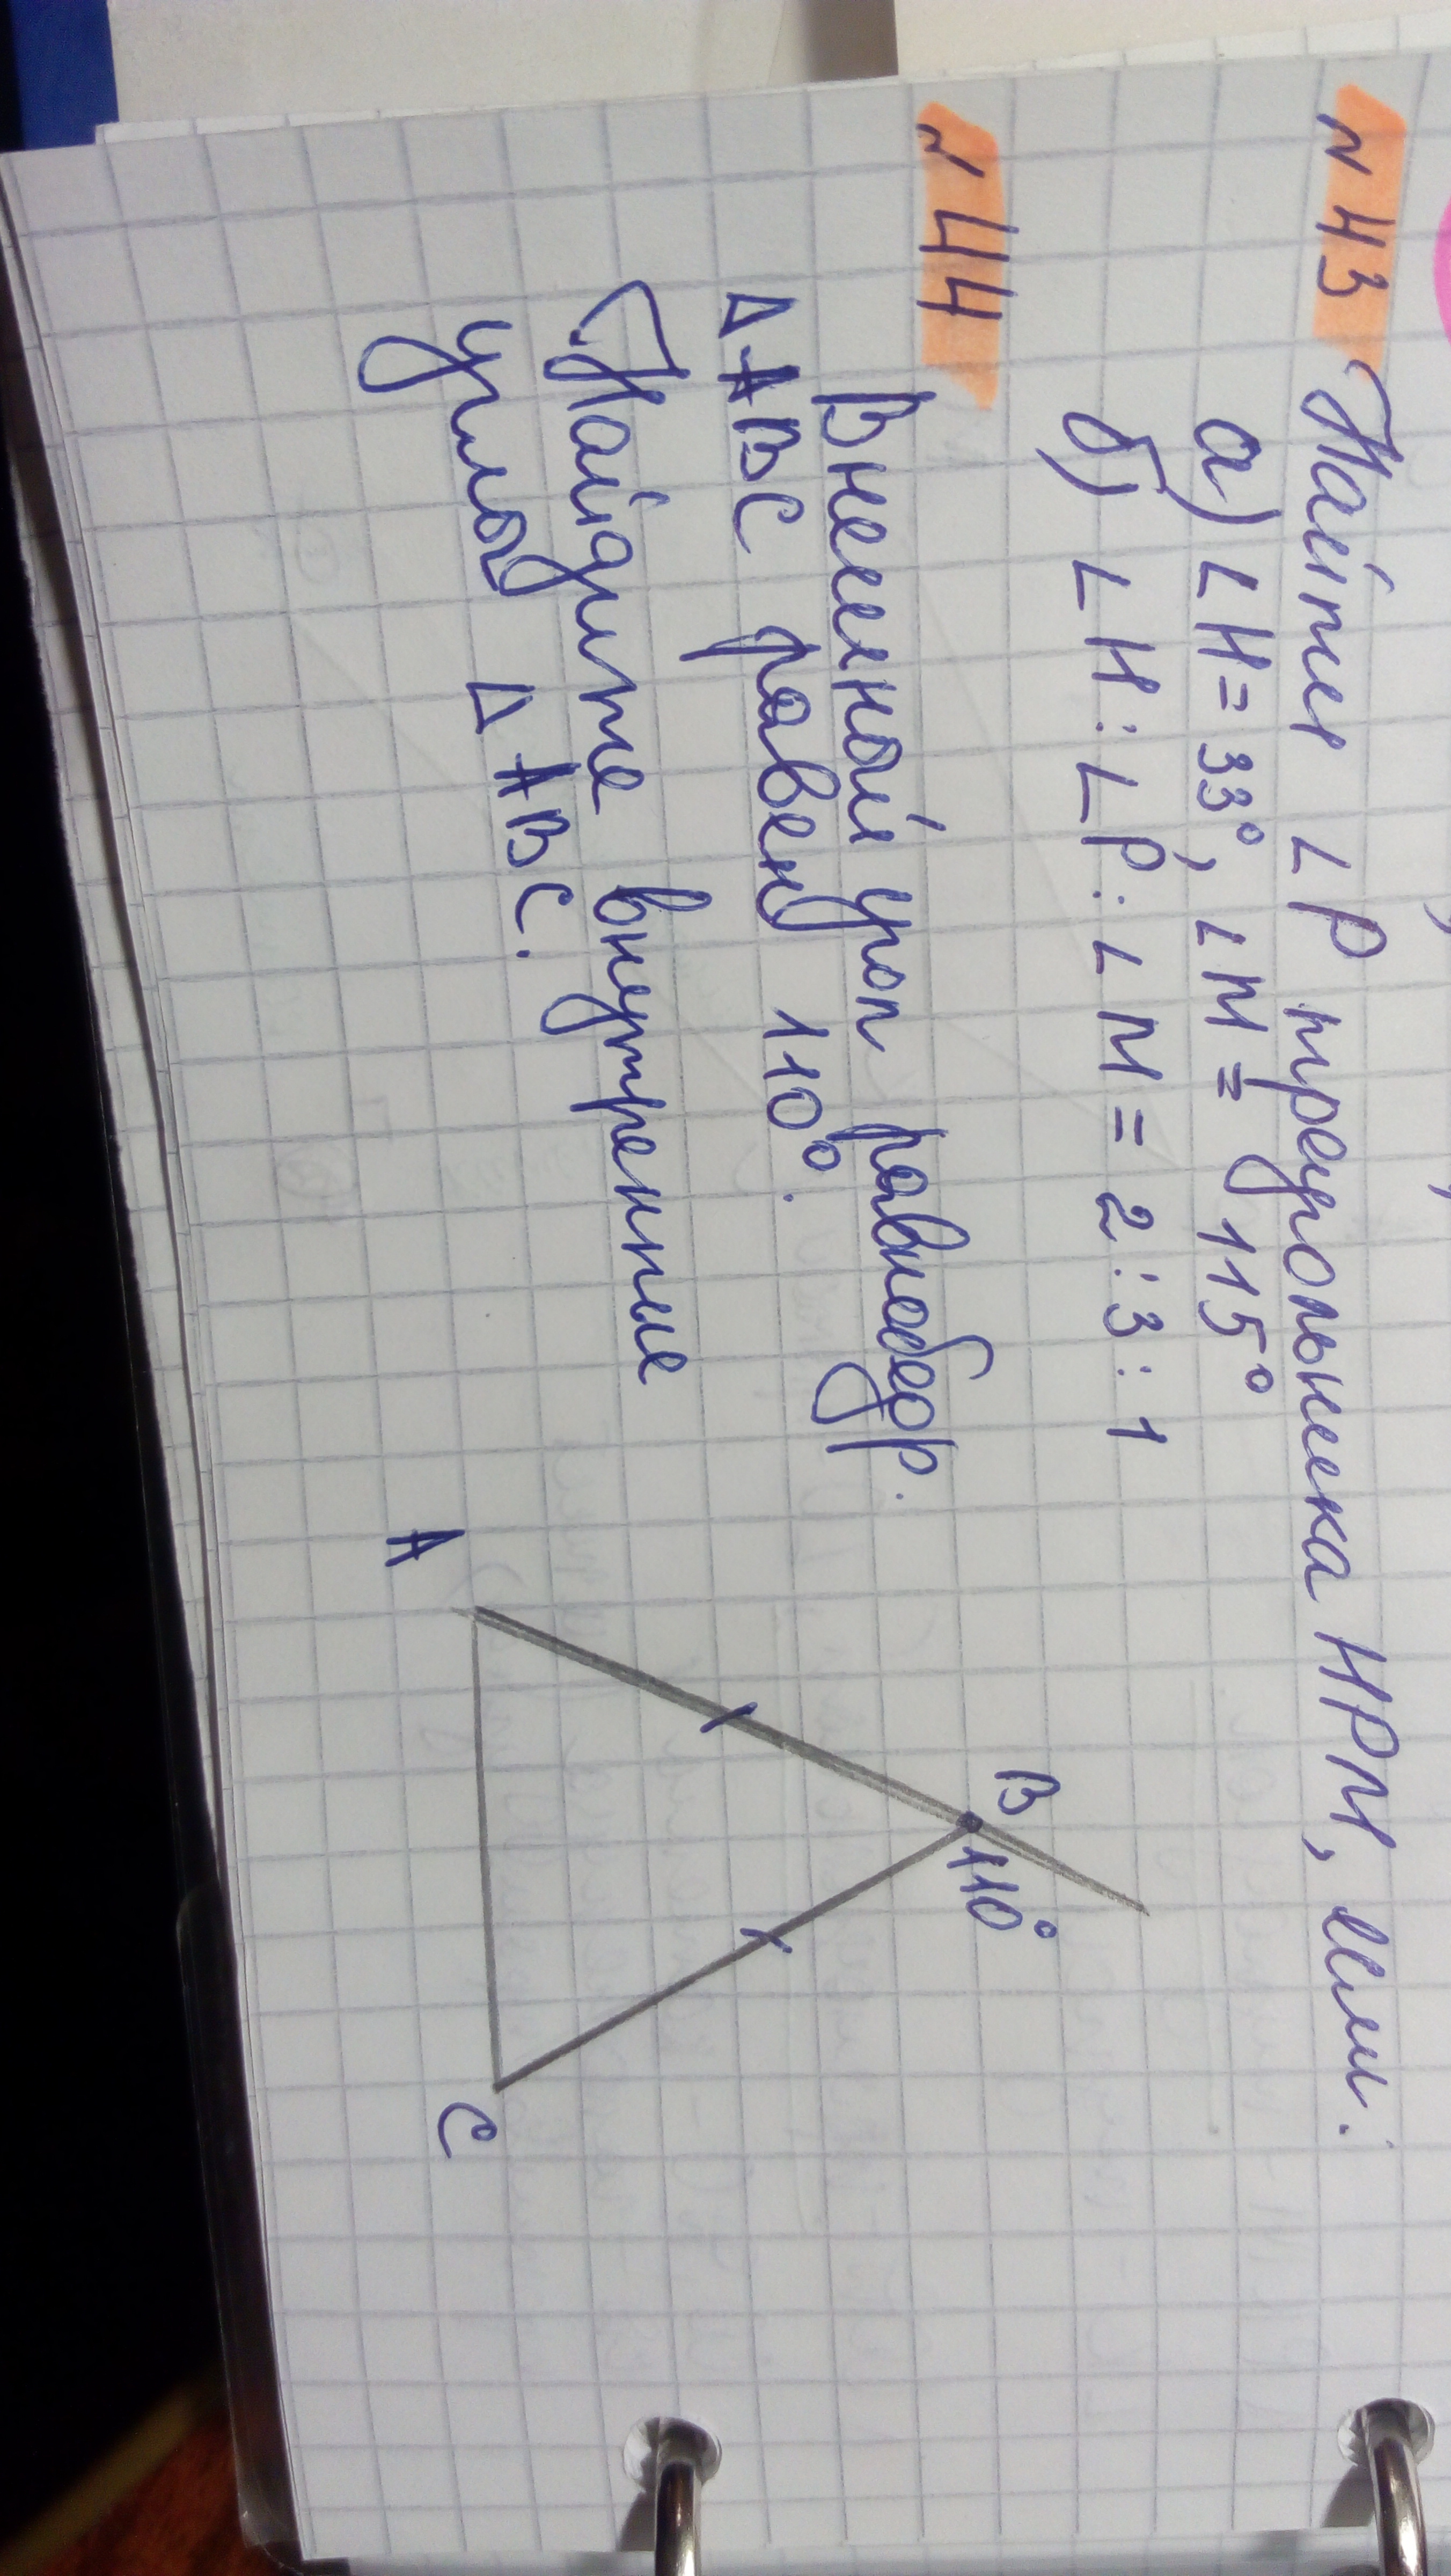 N 43 Найти ∠P треугольника НРМ, если:
а) ∠Н = 33°, ∠М = 115°
б) ∠Н : ∠Р : ∠М = 2 : 3 : 1
N 44
Внешний угол равнобедр.
Δ АВС равен 110°.
Найдите внутренние
углы Δ АВС.
В
110°
А
С